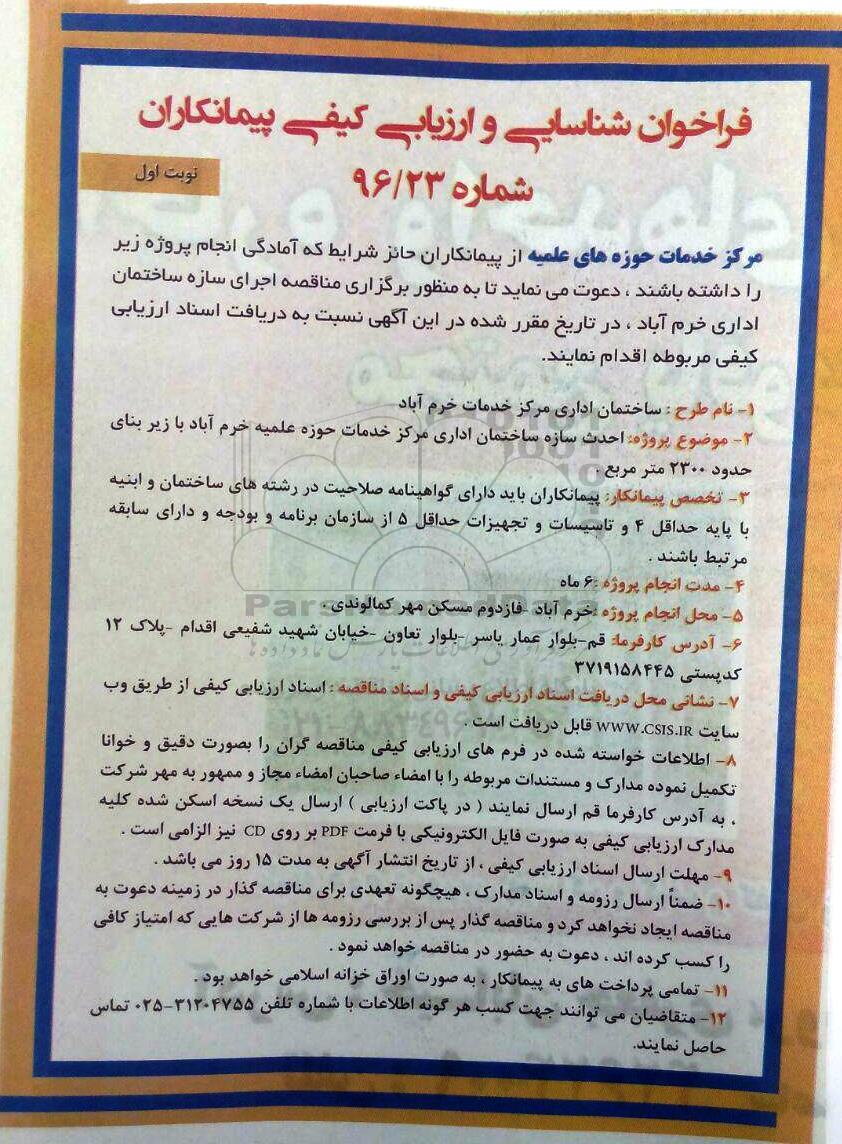 فراخوان شناسایی و ارزیابی کیفی پیمانکاران
شماره ۹۶/۲۳
نوبت اول
مرکز خدمات حوزه های علمیه از پیمانکاران حائز شرایط که آمادگی انجام پروژه زیر
را داشته باشند ، دعوت می نماید تا به منظور برگزاری مناقصه اجرای سازه ساختمان
اداری خرم آباد ، در تاریخ مقرر شده در این آگهی نسبت به دریافت اسناد ارزیابی
کیفی مربوطه اقدام نمایند.
۱- نام طرح : ساختمان اداری مرکز خدمات خرم آباد
۲- موضوع پروژه: احدث سازه ساختمان اداری مرکز خدمات حوزه علمیه خرم آباد با زیر بنای
حدود ۲۳۰۰ متر مربع .
۳- تخصص پیمانکار: پیمانکاران باید دارای گواهینامه صلاحیت در رشته های ساختمان و ابنیه
با پایه حداقل ۴ و تاسیسات و تجهیزات حداقل ۵ از سازمان برنامه و بودجه و دارای سابقه
مرتبط باشند .
۴- مدت انجام پروژه :۶ ماه
۵- محل انجام پروژه :خرم آباد -فازدوم مسکن مهر کمالوندی .
۶- آدرس کارفرما: قم-بلوار عمار یاسر -بلوار تعاون -خیابان شهید شفیعی اقدام -پلاک ۱۲
کدپستی ۳۷۱۹۱۵۸۴۴۵
۷- نشانی محل دریافت اسناد ارزیابی کیفی و اسناد مناقصه : اسناد ارزیابی کیفی از طریق وب
سایت WWW.CSIS.IR قابل دریافت است .
۸- اطلاعات خواسته شده در فرم های ارزیابی کیفی مناقصه گران را بصورت دقیق و خوانا
تکمیل نموده مدارک و مستندات مربوطه را با امضاء صاحبان امضاء مجاز و ممهور به مهر شرکت
، به آدرس کارفرما قم ارسال نمایند ( در پاکت ارزیابی ) ارسال یک نسخه اسکن شده کلیه
مدارک ارزیابی کیفی به صورت فایل الکترونیکی با فرمت PDF بر روی CD نیز الزامی است .
۹- مهلت ارسال اسناد ارزیابی کیفی ، از تاریخ انتشار آگهی به مدت ۱۵ روز می باشد .
۱۰- ضمناً ارسال رزومه و اسناد مدارک ، هیچگونه تعهدی برای مناقصه گذار در زمینه دعوت به
مناقصه ایجاد نخواهد کرد و مناقصه گذار پس از بررسی رزومه ها از شرکت هایی که امتیاز کافی
را کسب کرده اند ، دعوت به حضور در مناقصه خواهد نمود .
۱۱- تمامی پرداخت های به پیمانکار ، به صورت اوراق خزانه اسلامی خواهد بود .
۱۲- متقاضیان می توانند جهت کسب هر گونه اطلاعات با شماره تلفن ۳۱۲۰۴۷۵۵-۰۲۵ تماس
حاصل نمایند.